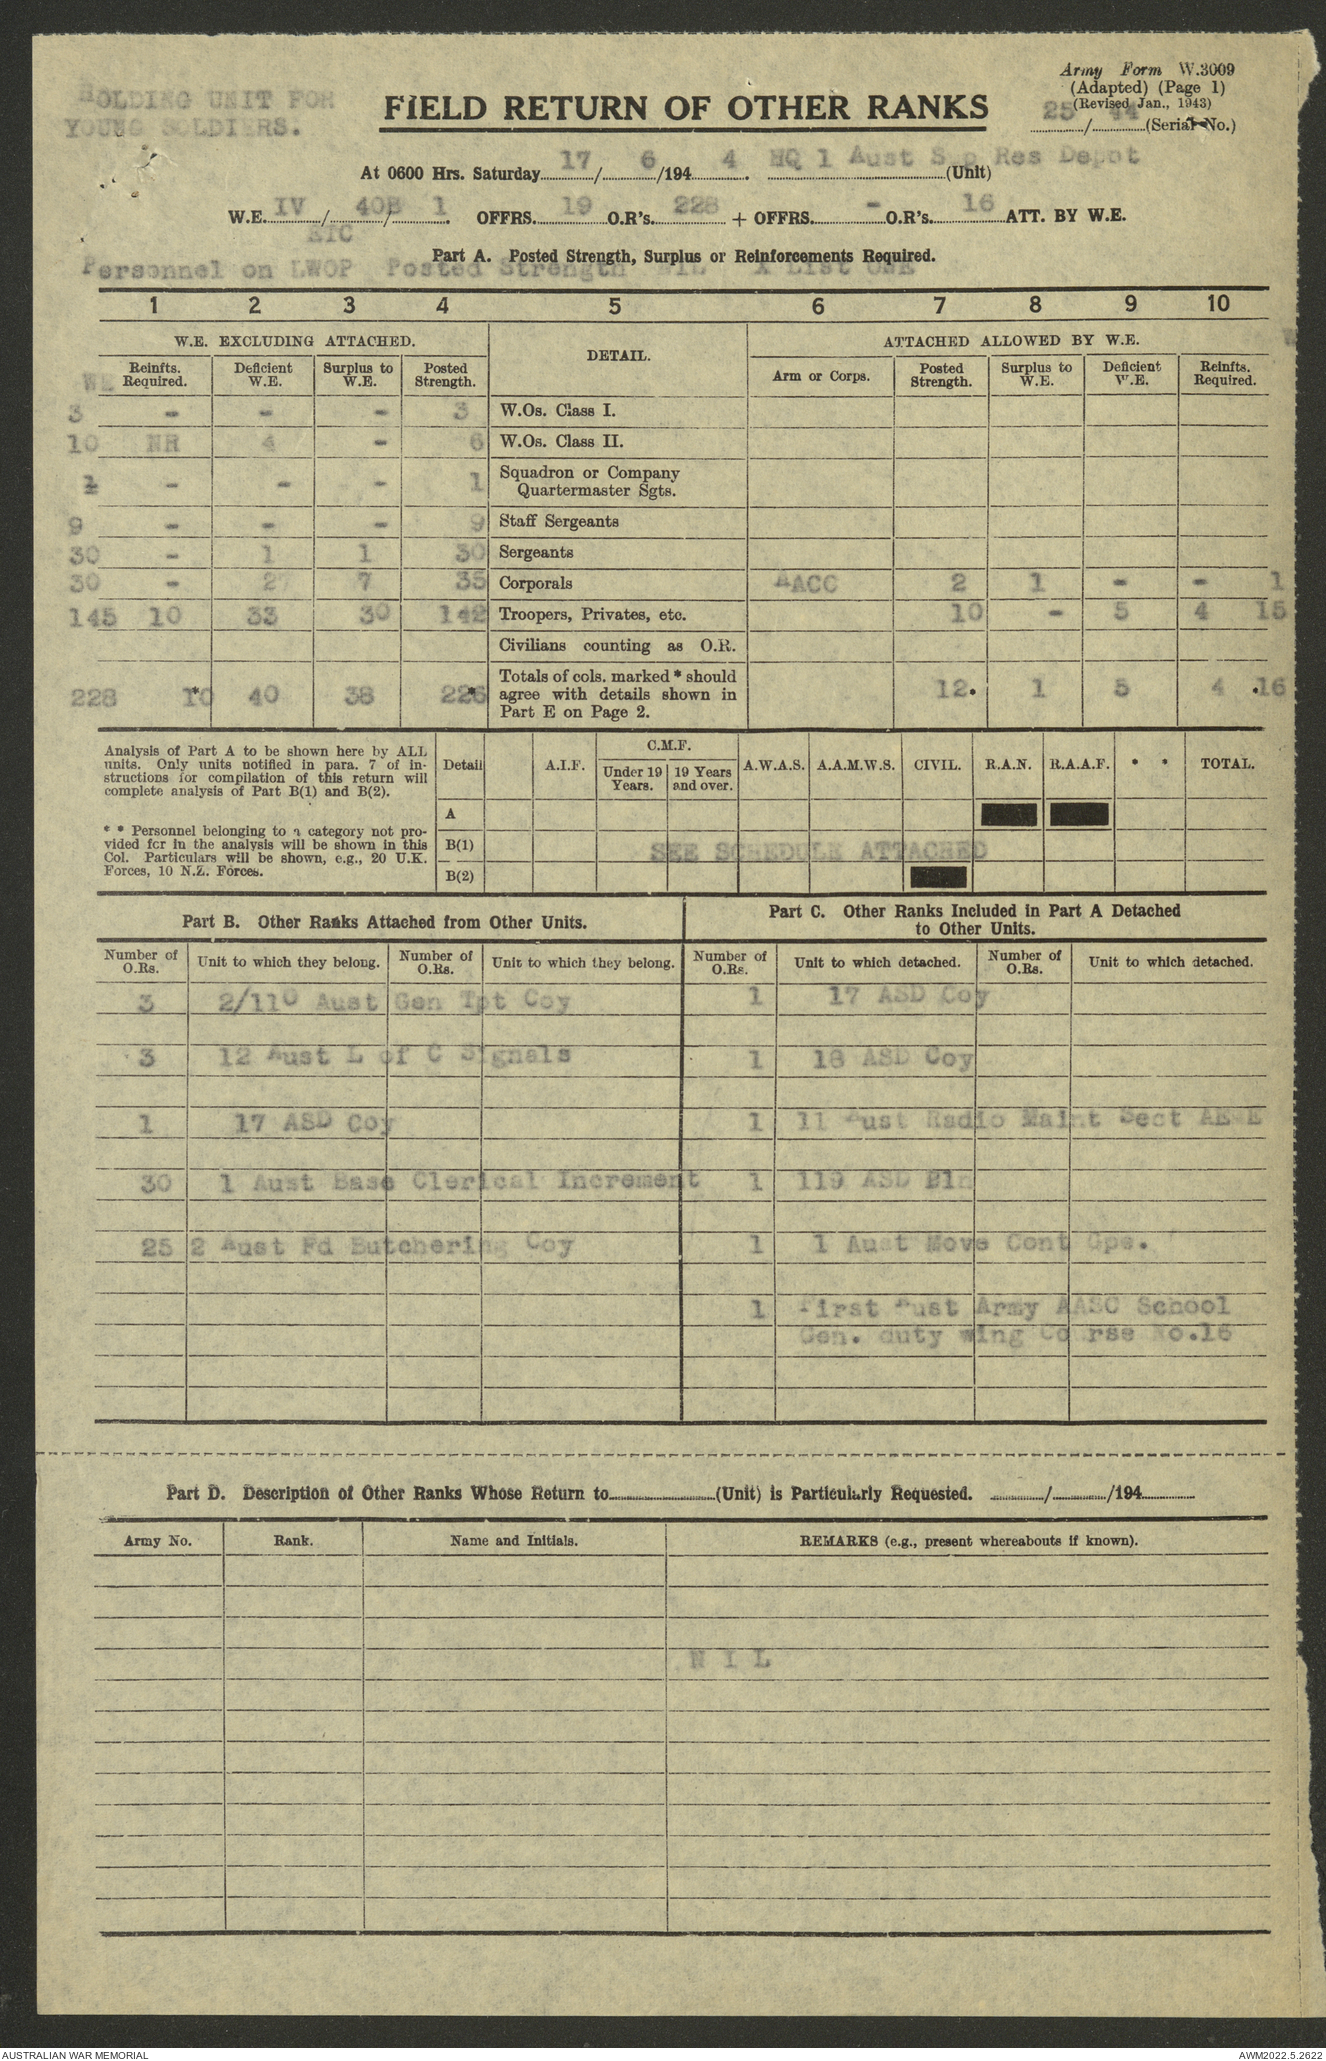 HOLDING UNIT FOR
YOUNG SOLDIERS.
Army Form W.3009
(Adapted) (Page 1)
(Revised Jan., 1943)
25 / 44 (Serial No.)
FIELD RETURN OF OTHER RANKS
At 0600 Hrs. Saturday 17 / 6 /194 4 . HQ 1 Aust Sup Res Depot (Unit)
W.E. IV / 40B / 1 . OFFRS. 19 O.R's. 228 + OFFRS. - O.R's. 16 ATT. BY W.E.
Part A. Posted Strength, Surplus or Reinforcements Required.
Personnel on LWOP Posted Strength NIL X List ONE
1 2 3 4 5 6 7 8 9 10
W.E. EXCLUDING ATTACHED. DETAIL. ATTACHED ALLOWED BY W.E.
WE Reinfts. Required. Deficient W.E. Surplus to W.E. Posted Strength. Arm or Corps. Posted Strength. Surplus to W.E. Deficient W.E. Reinfts. Required.
3 - - - 3 W.Os. Class I.
10 NR 4 - 6 W.Os. Class II.
1 - - - 1 Squadron or Company Quartermaster Sgts.
9 - - - 9 Staff Sergeants
30 - 1 1 30 Sergeants
30 - 2 7 35 Corporals AACC 2 1 - - 1
145 10 33 30 142 Troopers, Privates, etc. 10 - 5 4 15
Civilians counting as O.R.
228 10* 40 38 226* Totals of cols. marked * should agree with details shown in Part E on Page 2. 12. 1 5 4 .16
Analysis of Part A to be shown here by ALL
units. Only units notified in para. 7 of in-
structions for compilation of this return will
complete analysis of Part B(1) and B(2).
* * Personnel belonging to a category not pro-
vided for in the analysis will be shown in this
Col. Particulars will be shown, e.g., 20 U.K.
Forces, 10 N.Z. Forces.
Detail A.I.F. C.M.F. Under 19 Years. 19 Years and over. A.W.A.S. A.A.M.W.S. CIVIL. R.A.N. R.A.A.F. * * TOTAL.
A
B(1)
SEE SCHEDULE ATTACHED
B(2)
Part B. Other Ranks Attached from Other Units.
Part C. Other Ranks Included in Part A Detached
to Other Units.
Number of O.Rs. Unit to which they belong. Number of O.Rs. Unit to which they belong. Number of O.Rs. Unit to which detached. Number of O.Rs. Unit to which detached.
3 2/110 Aust Gen Tpt Coy 1 17 ASD Coy
3 12 Aust L of C Signals 1 18 ASD Coy
1 17 ASD Coy 1 11 Aust Radio Maint Sect AEME
30 1 Aust Base Clerical Increment 1 119 ASD Pln
25 2 Aust Fd Butchering Coy 1 1 Aust Move Cont Gps.
1 First Aust Army AASC School
Gen. duty wing Course No.16
Part D. Description of Other Ranks Whose Return to (Unit) is Particularly Requested. / /194
Army No. Rank. Name and Initials. REMARKS (e.g., present whereabouts if known).
N I L
AUSTRALIAN WAR MEMORIAL
AWM2022.5.2622